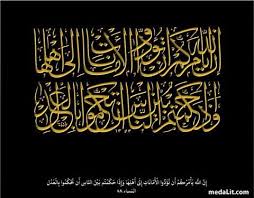 إن الله يأمركم أن تؤدوا الأمانات إلى أهلها
وإذا حكمتم بين الناس أن تحكموا بالعدل
إِنَّ اللَّهَ يَأْمُرُكُمْ أَن تُؤَدُّوا الْأَمَانَاتِ إِلَىٰ أَهْلِهَا وَإِذَا حَكَمْتُم بَيْنَ النَّاسِ أَن تَحْكُمُوا بِالْعَدْلِ
النساء ٥٨
medaLit.com